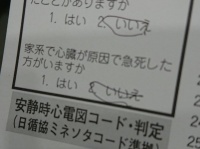 たことがありますか
1. はい 2. いいえ
家系で心臓が原因で急死した
方がいますか
1. はい 2. いいえ
安静時心電図コード・判定
(日循協ミネソタコード準拠)